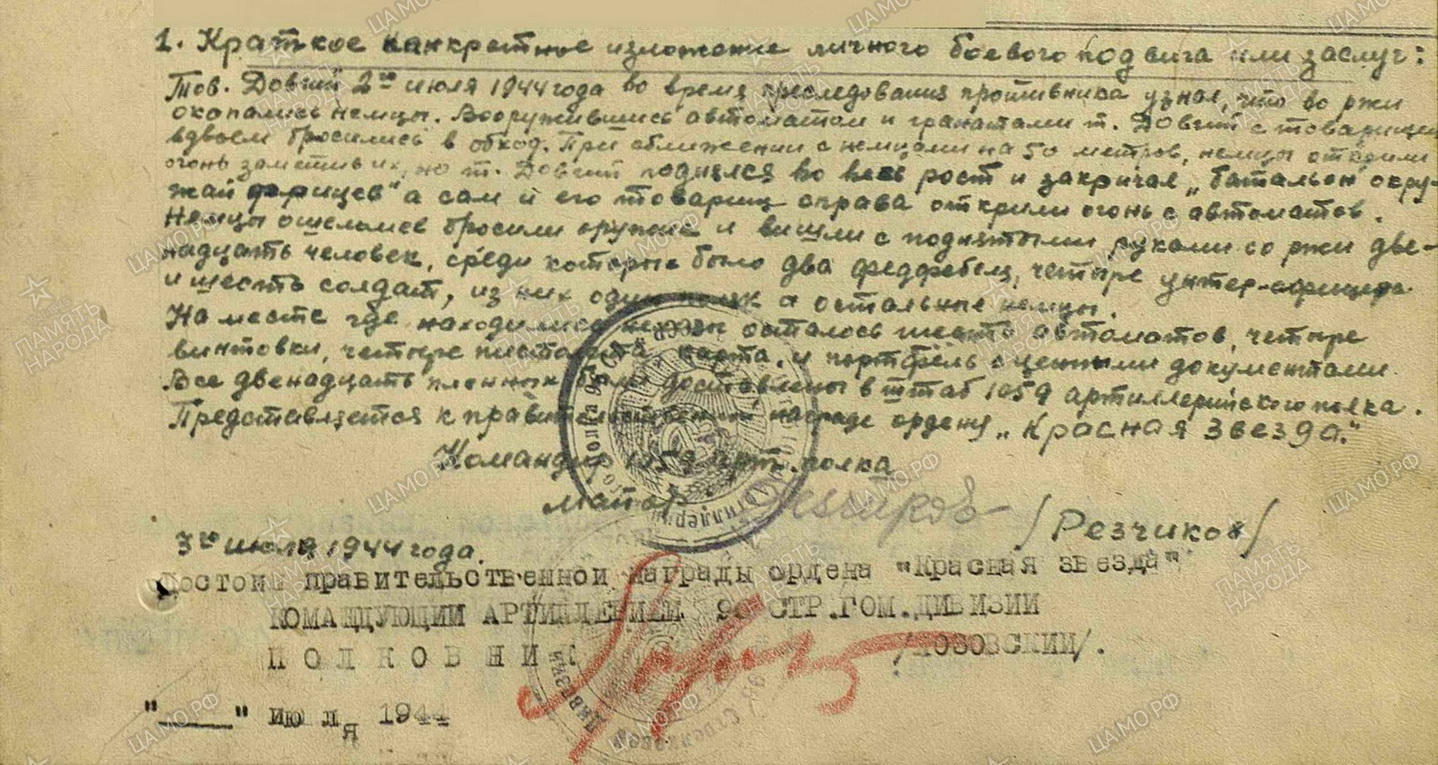 1. Краткое канкретное изложение личного боевого подвига или заслуг:
Тов. Довгий 2го июля 1944 года во время преследования противника узнал, что во ржи
окопались немцы. Вооружившись автоматом и гранатами т. Довгий с товарищем
вдвоем бросились в обход. При сближении с немцами на 50 метров, немцы открили
огонь заметив их, но т. Довгий поднялся во весь рост и закричал „батальон окру-
жай фрицев" а сам и его товарищ справа открили огонь с автоматов.
Немцы ошеломев бросили оружие и вишли с поднятыми руками со ржи две-
надцать человек, среди которые было два федфебел, четыре унтер-офицера
и шесть солдат, из них один поляк а остальные немцы.
На месте где находились немцы осталось шесть автоматов, четыре
винтовки, четыре пистолета, карта, и портфель с ценными документами.
Все двенадцать пленных были доставлены в штаб 1059 артиллерийского полка.
Представляется к правительственной награде ордену „Красная Звезда."
Командир 1059 арт. полка
майор /Резчиков/
3го июля 1944 года.
Достоин правительственной награды ордена "Красная звезда"
КОМАНДУЮЩИЙ АРТИЛЛЕРИЕЙ 96 СТР.ГОМ.ДИВИЗИИ
ПОЛКОВНИК /ЛОЗОВСКИЙ/.
"___" июля 1944
ПАМЯТЬ НАРОДА
ЦАМО.РФ